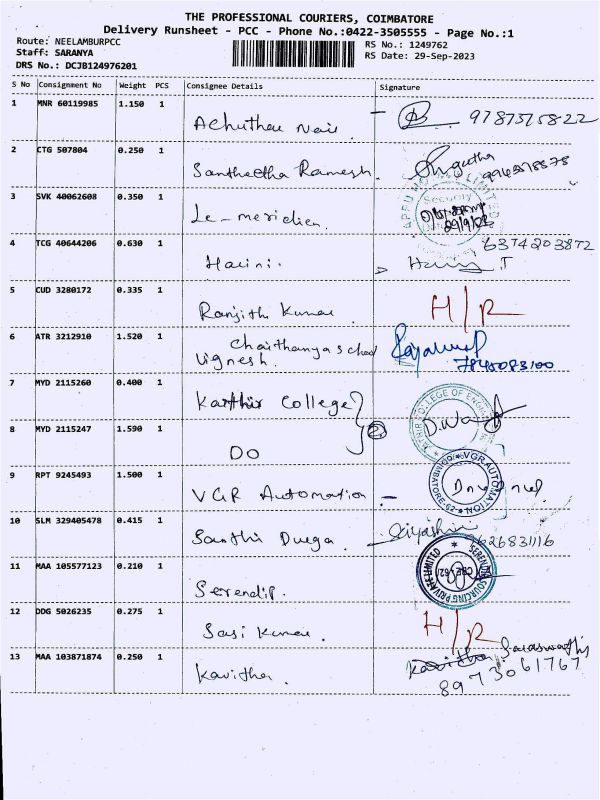 THE PROFESSIONAL COURIERS, COIMBATORE
Delivery Runsheet - PCC - Phone No.:0422-3505555 - Page No.:1
Route: NEELAMBURPCC
Staff: SARANYA
DRS No.: DCJB124976201
RS No.: 1249762
RS Date: 29-Sep-2023
S No Consignment No Weight PCS Consignee Details Signature
1 MNR 60119985 1.150 1 Achuthan Nair 9787375822
2 CTG 507804 0.250 1 Santheetha Ramesh.
3 SVK 40062608 0.350 1 Le-meridien. Security 29/9/23
4 TCG 40644206 0.630 1 Harini. 6374203872
5 CUD 3280172 0.335 1 Ranjith Kumar H/R
6 ATR 3212910 1.520 1 Chaithanya school
Vignesh. 7845083100
7 MYD 2115260 0.400 1 Kathir College 2
8 MYD 2115247 1.590 1 DO
9 RPT 9245493 1.500 1 VGR Automation - VGR AUTOMATION
10 SLM 329405478 0.415 1 Santhi Durga.
11 MAA 105577123 0.210 1 Serendip. PRIVATE LIMITED
12 DDG 5026235 0.275 1 Sasi Kumar. H/R
13 MAA 103871874 0.250 1 Kavitha. Saraswathi
8973061767